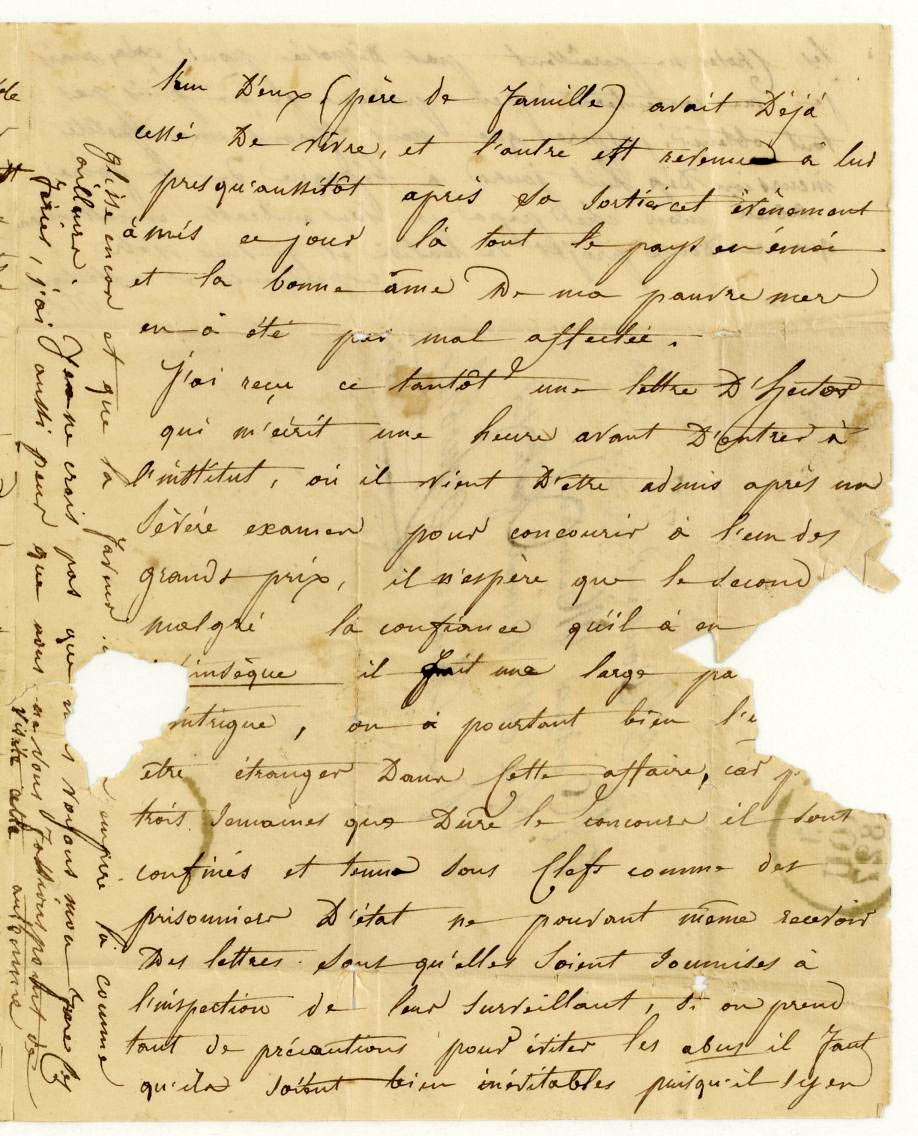 l'un D'eux (père de famille) avait Déjà
cessé De vivre, et l'autre est revenu à lui
presqu'aussitôt après sa sortie cet évènement
à mis ce jour là tout le pays en émoi
et la bonne âme De ma pauvre mere
en à été pas mal affectée.
J'ai reçu ce tantôt une lettre D'Hector
qui m'écrit une heure avant D'entrer à
l'institut, où il vient D'etre admis après un
sévère examen pour concourir à l'un des
grands prix, il n'espère que le second
malgré la confiance qu'il à en
il fait une large pa
ntrigue, on à pourtant bien l'
être étranger Dans Cette affaire, car p
trois semaines que Dure le concours il sont
confinés et tenus sous Clefs comme des
prisonniers D'état ne pouvant même recevoir
Des lettres sans qu'elles soient soumises à
l'inspection de leur surveillant, si on prend
tant de précautions pour éviter les abus il faut
qu'ils soient bien inévitables puisqu'il s'y en
glisse encor et que la faveur
empire là comme
ailleurs. Je ne crois pas que nous voyons mon frere les
fériés, j'ai aussi peur que nous ne vous fassions pas de
visite cette automne